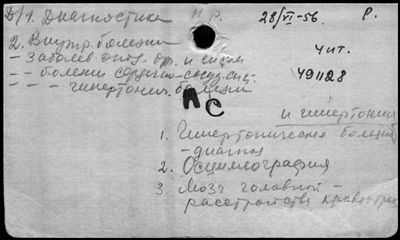 Д/1. Диагностика М Р. 28/VI-56. Р.
2. Внутр. болезни
Чит.
— Заболев. бр. и сизм
491128
— — болезни сердечно-сосудист.
— — — гипертонич. болезни
ПС
и гипертония
1. Гипертоническая болезнь
— диагноз
2. Осциллография
3. Мозг головной —
расстройства кровообращ